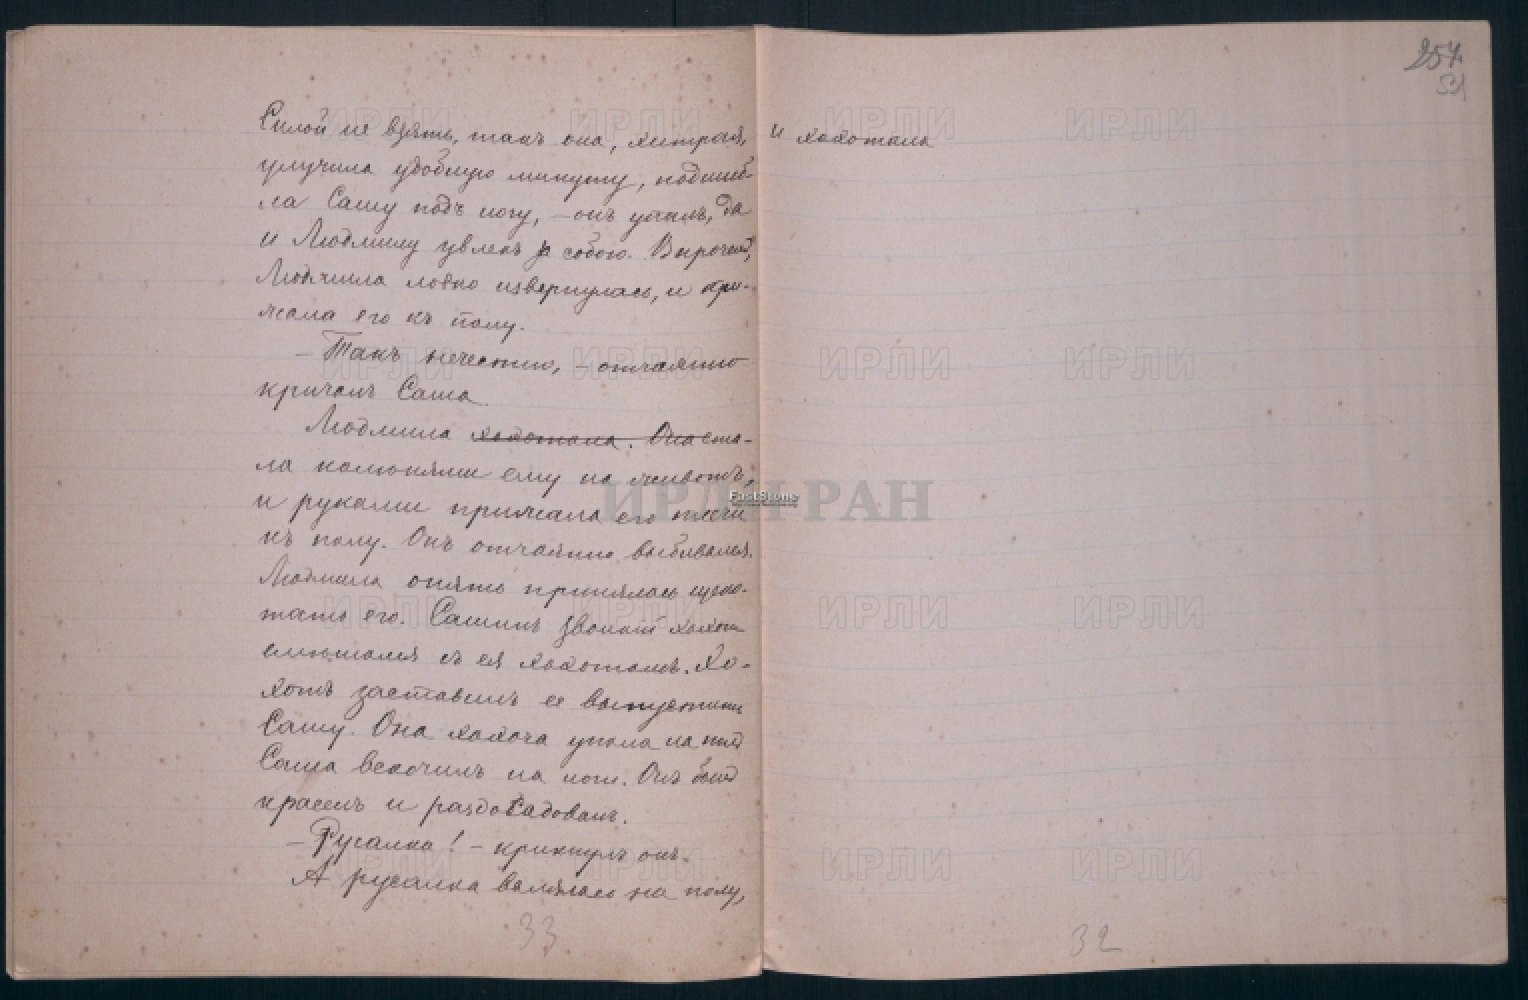 Силой не взять, такъ она, хитрая,
улучила удобную минуту, подшиб-
ла Сашу подъ ногу, – онъ упалъ, да
и Людмилу увлекъ за собою. Впрочемъ,
Людмила ловко извернулась, и при-
жала его къ полу.
– Такъ нечестно, – отчаянно
кричалъ Саша.
Людмила хохотала. Она ста-
ла коленями ему на животъ,
и руками прижала его плечи
къ полу. Онъ отчаянно выбивался.
Людмила опять принялась щеко-
тать его. Сашинъ звонкий хохот
смешался съ ея хохотомъ. Хо-
хотъ заставилъ ее выпустить
Сашу. Она хохоча упала на полъ
Саша вскочилъ на ноги. Онъ былъ
красенъ и раздосадованъ.
– Русалка! – крикнулъ онъ.
А русалка валялась на полу,
33
257
31
и хохотала
32
ИРЛИ РАН
ИРЛИ
FastStone